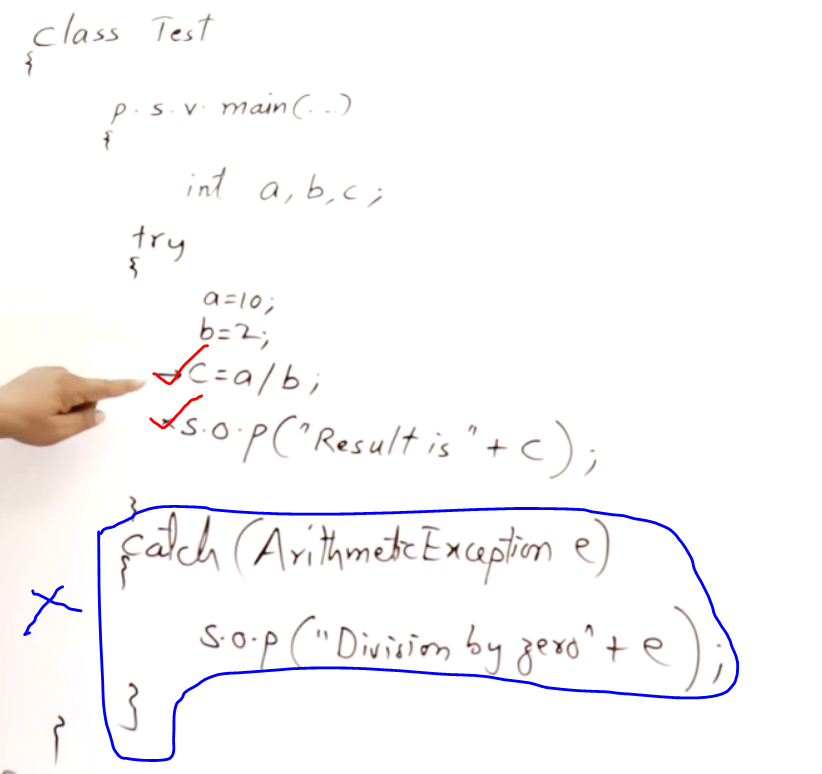 class Test
{
p. s. v. main(...)
{
int a, b, c;
try
{
a=10;
b=2;
→ c=a/b;
s.o.p("Result is "+ c);
}
catch (ArithmeticException e)
{
s.o.p("Division by zero"+ e);
}
}